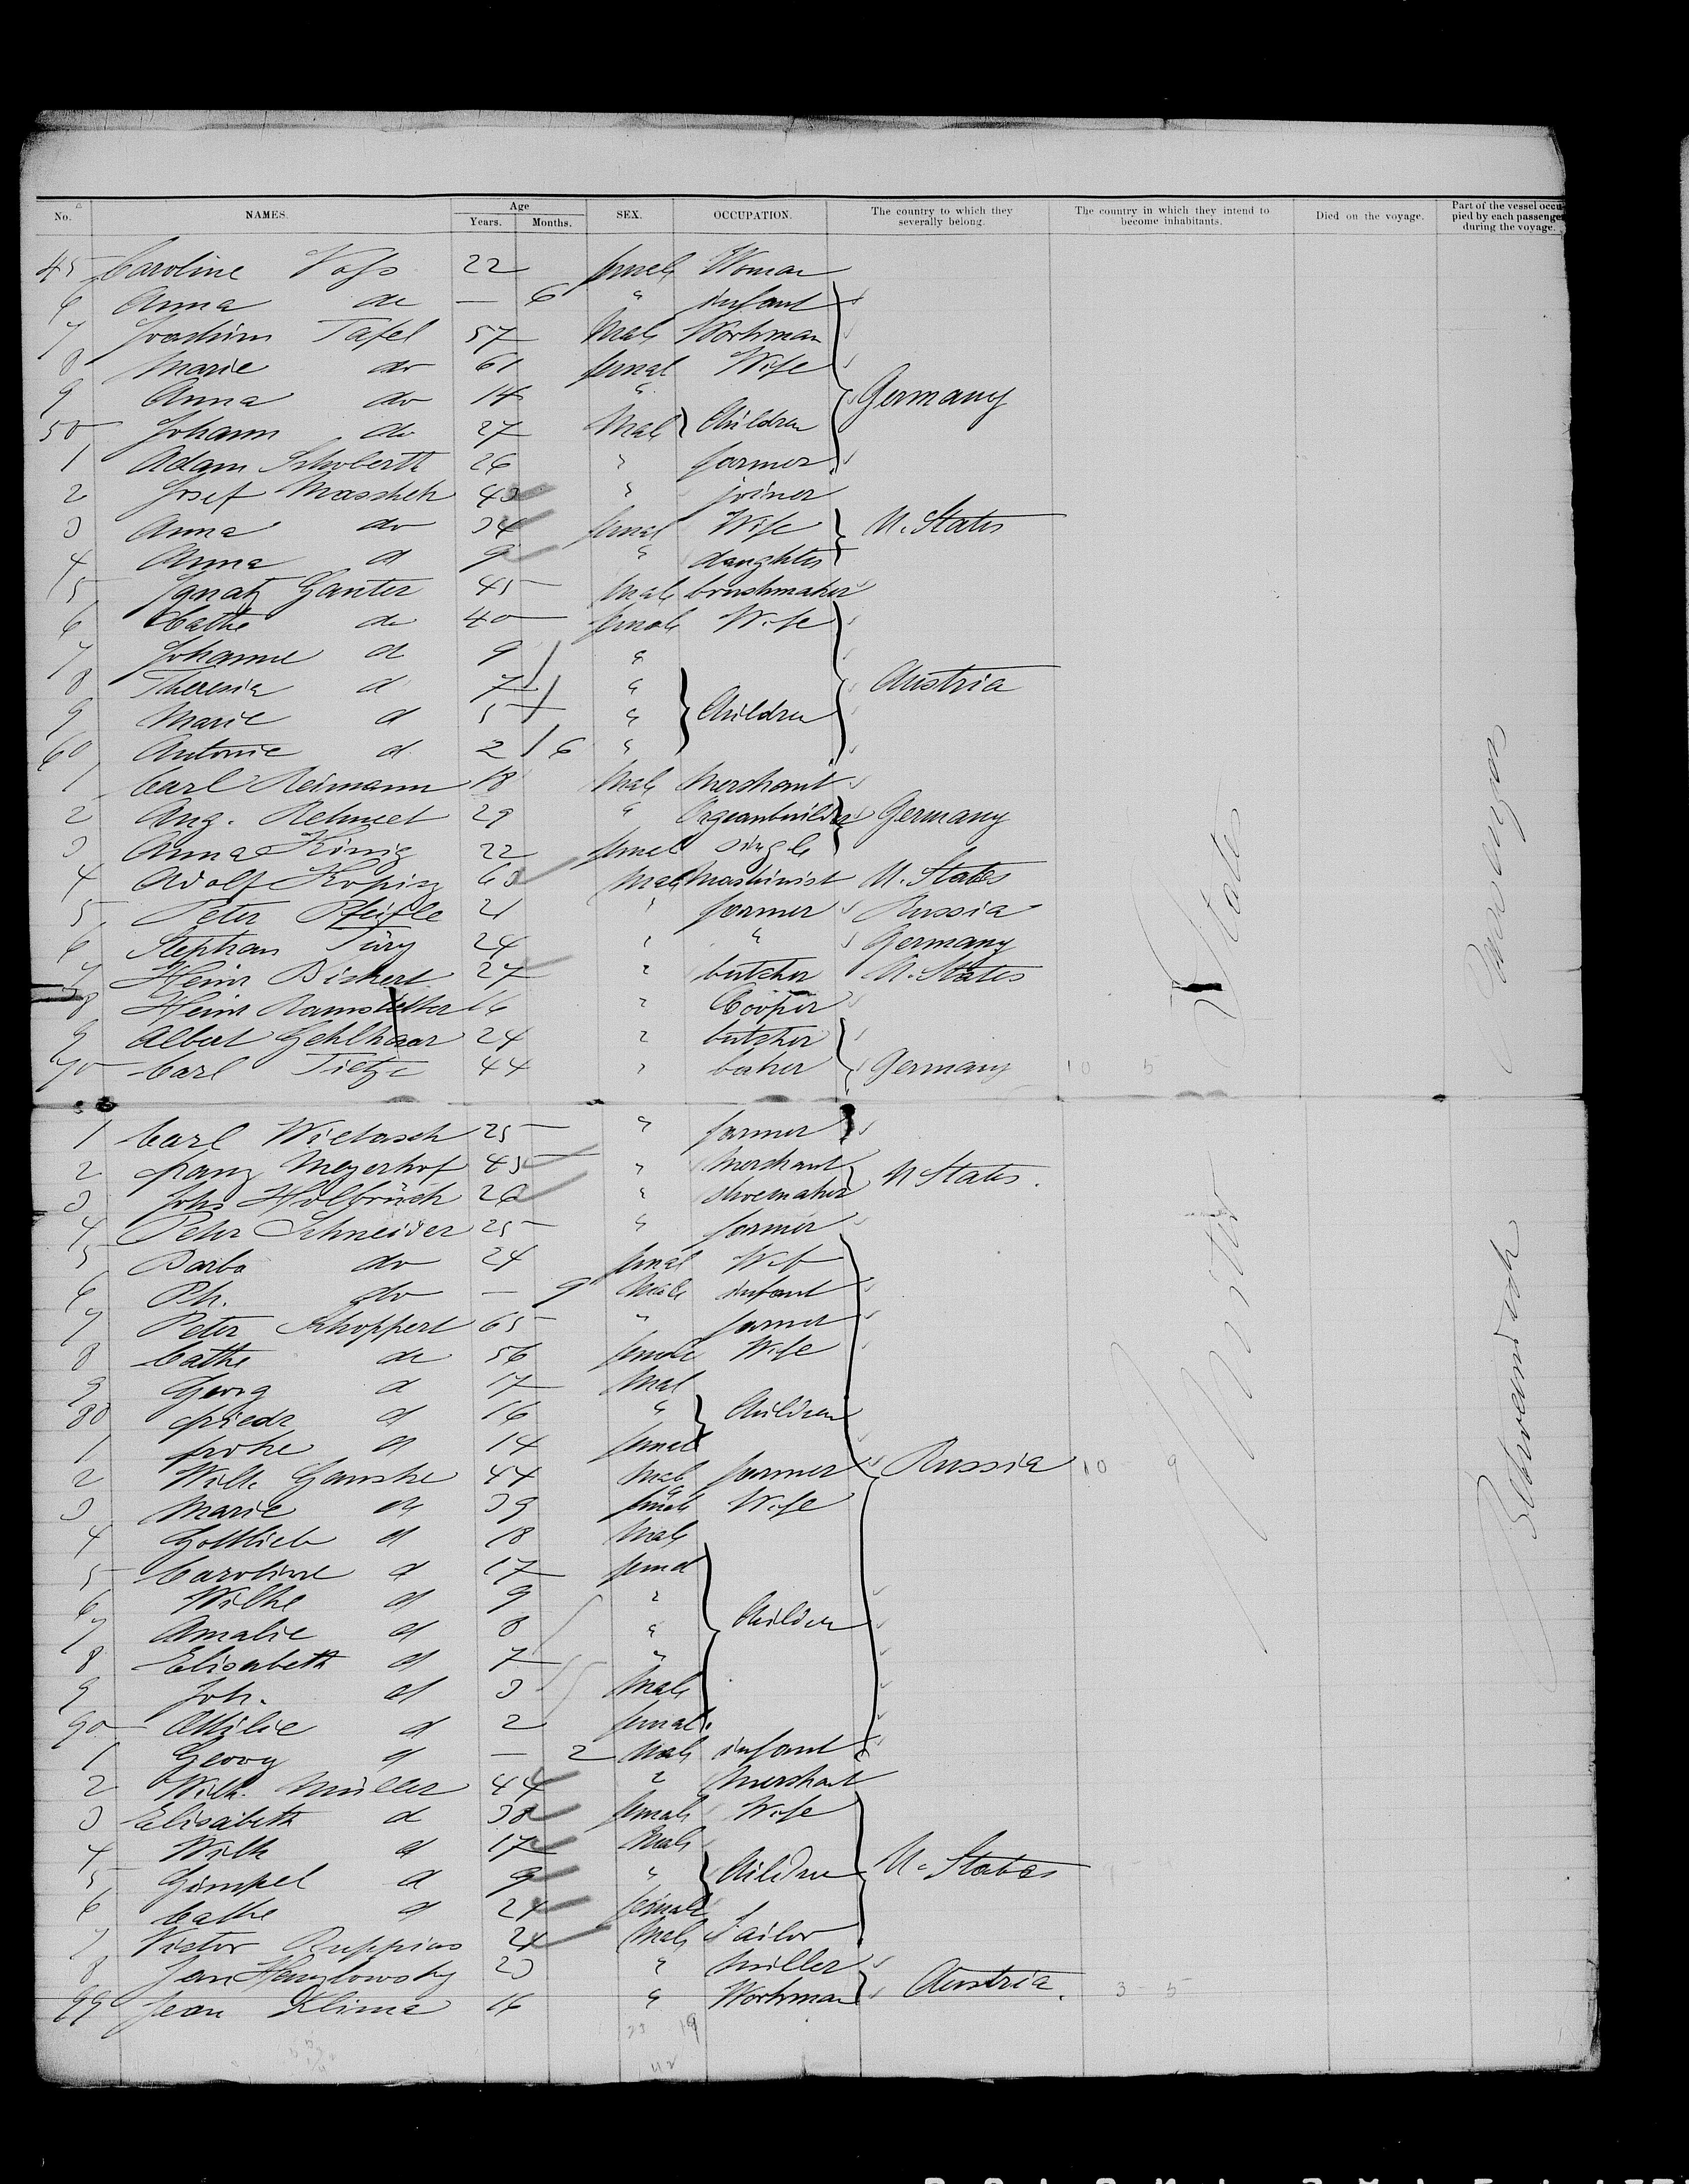 No. NAMES. Age Years. Months. SEX. OCCUPATION. The country to which they severally belong. The country in which they intend to become inhabitants. Died on the voyage. Part of the vessel occupied by each passenger during the voyage.
45 Caroline Voss 22 female Woman
6 Anna do — 6 " infant
7 Joachim Tafel 57 Male Workman
8 Marie do 61 female Wife
9 Anna do 14 " Germany
50 Johann do 27 Male Children
1 Adam Schoberth 26 " farmer
2 Josef Maschek 43 " joiner
3 Anna do 34 female Wife U. States
4 Anna d 9 " daughter
5 Ignatz Ganter 45 male brushmaker
6 Cathe do 40 female Wife
7 Johanne d 9 "
8 Theresia d 7 " Austria
9 Marie d 5 " Children
60 Antonie d 2 6 "
1 Carl Reimann 18 Male Merchant
2 Aug. 29 " Organbuilder Germany
3 Anna König 22 female single
4 Adolf 63 Male Maschinist U. States
5 Peter Pfeifle 21 " farmer Russia
6 Stephan Türy 24 " " Germany
7 Heinr 27 " butcher U. States
8 Heinr Ramstetter 16 " Cooper
9 Albert Gehlhaar 24 " butcher
70 Carl Tietze 44 " baker Germany 10 5
1 Carl 25 " farmer
2 franz Meyerhof 45 " Merchant U States.
3 Johs Holbrück 26 " shoemaker
4 Peter Schneider 25 " farmer
5 Barba do 24 female Wife
6 Ph. do — 9 Male infant
7 Peter Schoppert 65 " farmer
8 Cathe do 56 female Wife
9 Georg d 17 Male
80 friedr d 16 " Children
1 d 14 female
2 Wilh. Ganske 44 Male farmer Russia 10 9
3 Marie d 39 female Wife
4 Gottlieb d 18 Male
5 Caroline d 17 female
6 Wilhe d 9 "
7 Amalie d 8 " Children
8 Elisabeth d 7 "
9 Joh. d 3 Male
90 Ottilie d 2 female
1 Georg d — 2 Male infant
2 Wilh. Müller 44 " Merchant
3 Elisabeth d 38 female Wife
4 Wilh d 17 Male
5 Gimpel d 9 " Children U. States
6 Cathe d 24 female
7 Victor Ruppius 24 Male Tailor
8 Jan 23 " Miller
99 Jean Klima 16 " Workman Austria. 3 5
23 19
42